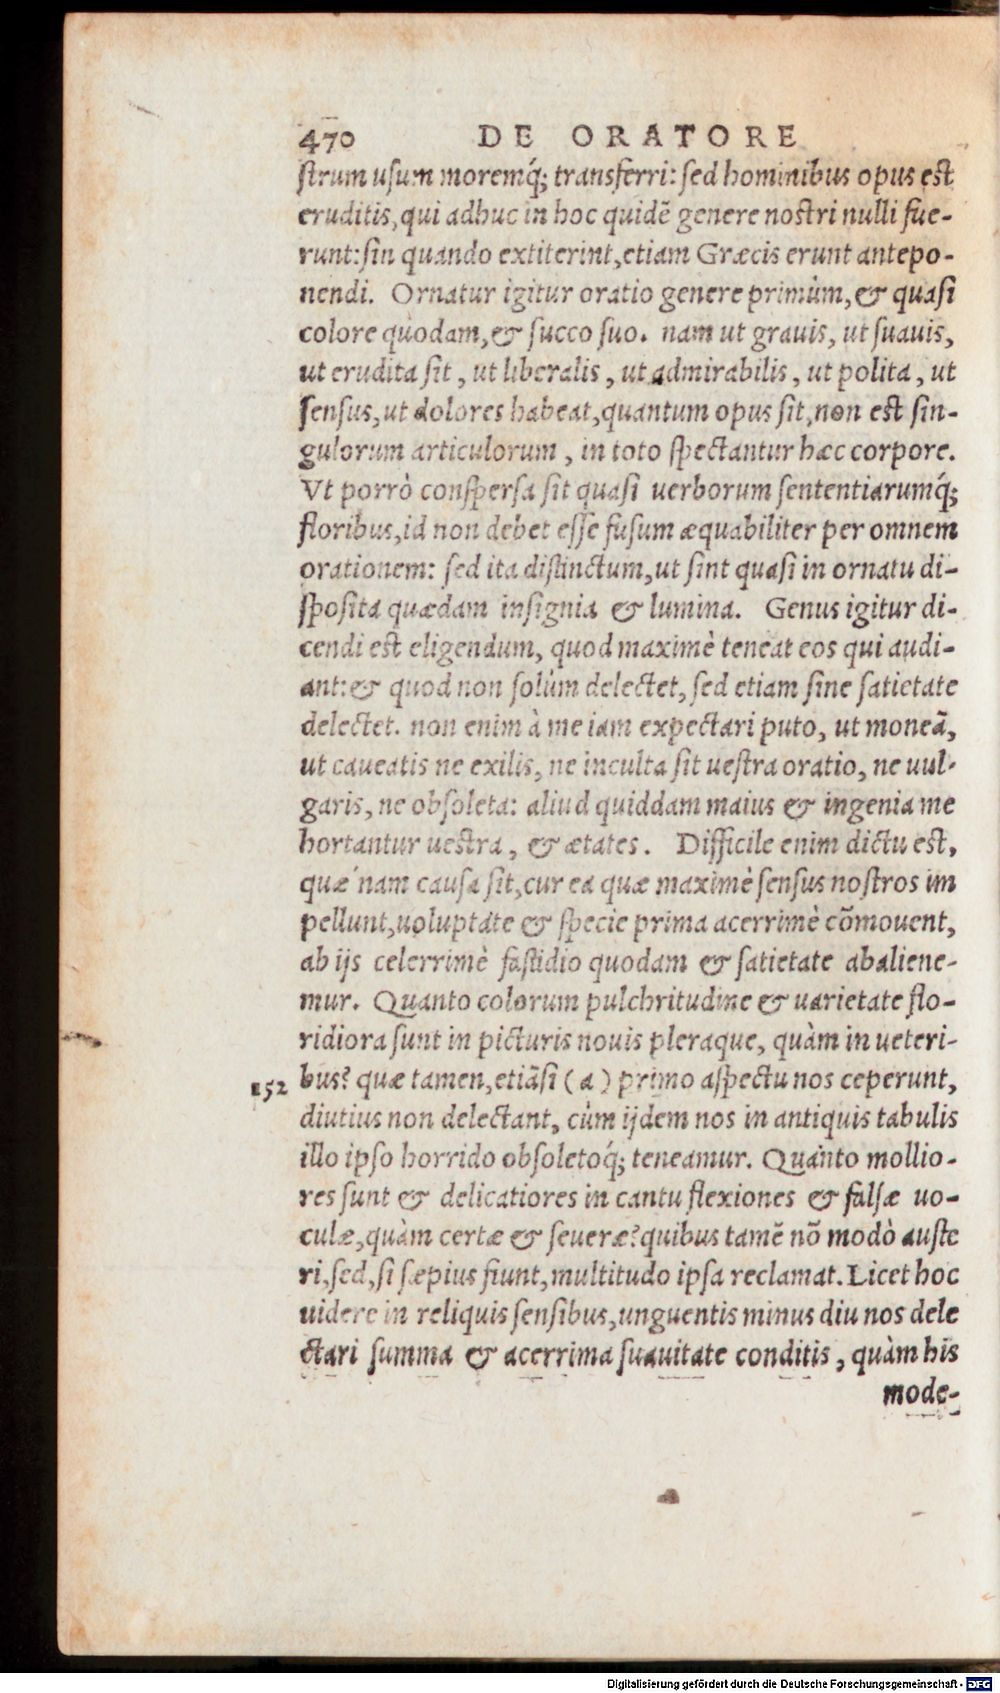 470 DE ORATORE
strum usum moremq́; transferri: sed hominibus opus est
eruditis, qui adhuc in hoc quidẽ genere nostri nulli fue-
runt: sin quando extiterint, etiam Græcis erunt antepo-
nendi. Ornatur igitur oratio genere primùm, & quasi
colore quodam, & succo suo. nam ut grauis, ut suauis,
ut erudita sit, ut liberalis, ut admirabilis, ut polita, ut
sensus, ut dolores habeat, quantum opus sit, non est sin-
gulorum articulorum, in toto spectantur hæc corpore.
Vt porrò conspersa sit quasi uerborum sententiarumq́;
floribus, id non debet esse fusum æquabiliter per omnem
orationem: sed ita distinctum, ut sint quasi in ornatu di-
sposita quædam insignia & lumina. Genus igitur di-
cendi est eligendum, quod maximè teneat eos qui audi-
ant: & quod non solùm delectet, sed etiam sine satietate
delectet. non enim à me iam expectari puto, ut moneã,
ut caueatis ne exilis, ne inculta sit uestra oratio, ne uul-
garis, ne obsoleta: aliud quiddam maius & ingenia me
hortantur uestra, & ætates. Difficile enim dictu est,
quæ nam causa sit, cur ea quæ maximè sensus nostros im
pellunt, uoluptate & specie prima acerrimè cõmouent,
ab ijs celerrimè fastidio quodam & satietate abaliene-
mur. Quanto colorum pulchritudine & uarietate flo-
ridiora sunt in picturis nouis pleraque, quàm in ueteri-
152 bus? quæ tamen, etiãsi (a) primo aspectu nos ceperunt,
diutius non delectant, cùm ijdem nos in antiquis tabulis
illo ipso horrido obsoletoq́; teneamur. Quanto mollio-
res sunt & delicatiores in cantu flexiones & falsæ uo-
culæ, quàm certæ & seueræ? quibus tamẽ nõ modò auste
ri, sed, si sæpius fiunt, multitudo ipsa reclamat. Licet hoc
uidere in reliquis sensibus, unguentis minus diu nos dele
ctari summa & acerrima suauitate conditis, quàm his
mode-
Digitalisierung gefördert durch die Deutsche Forschungsgemeinschaft - DFG